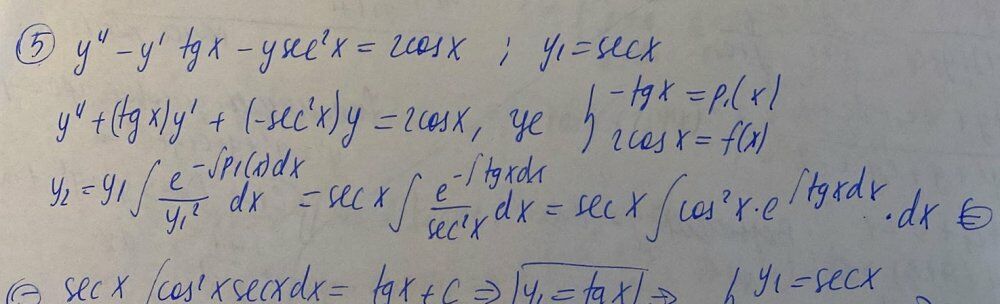 ⑤ y'' - y' tg x - y sec²x = 2cos x ; y₁ = sec x
y'' + (tg x)y' + (-sec²x)y = 2cos x, це { -tg x = p₁(x)
2cos x = f(x)
y₂ = y₁ ∫ e^(-∫p₁(x)dx) / y₁² dx = sec x ∫ e^(-∫tg x dx) / sec²x dx = sec x ∫ cos²x · e^(∫tg x dx) · dx ⊜
⊜ sec x ∫cos²x sec x dx = tg x + C ⇒ |y₁ = tg x| ⇒ { y₁ = sec x